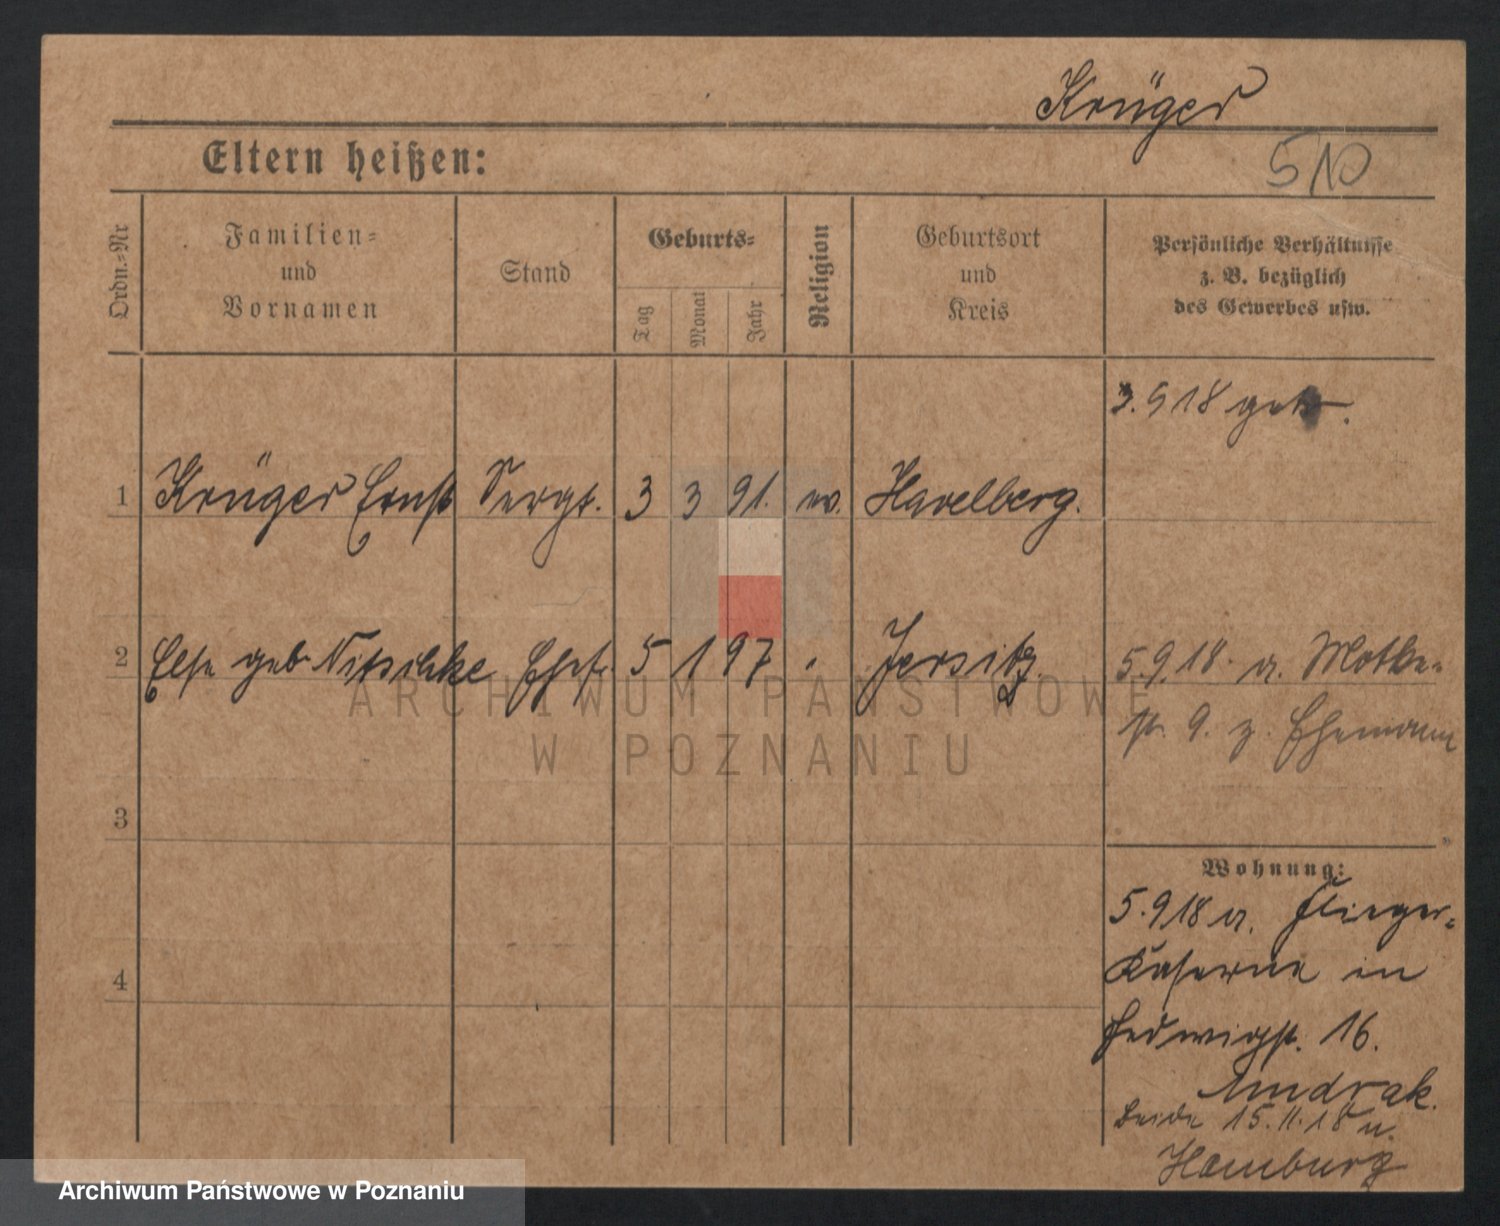 Krüger
510
Eltern heißen:
Ordn.-Nr
Familien-
und
Vornamen
Stand
Geburts-
Tag
Monat
Jahr
Religion
Geburtsort
und
Kreis
Persönliche Verhältnisse
z. B. bezüglich
des Gewerbes usw.
3. 9 18 getr.
1 Krüger Ernst Sergt. 3 3 91. ev. Havelberg.
2 Else geb Nitschke Ehefr. 5 1 97 " Jersitz.
5.9.18. a. Moltke-
str. 9. z. Ehemann
3
Wohnung:
5.9 18 a. Flieger-
Kaserne in
4
Hedwigst. 16.
Andrak.
beide 15.11.18 n.
Hamburg
ARCHIWUM PAŃSTWOWE
W POZNANIU
Archiwum Państwowe w Poznaniu